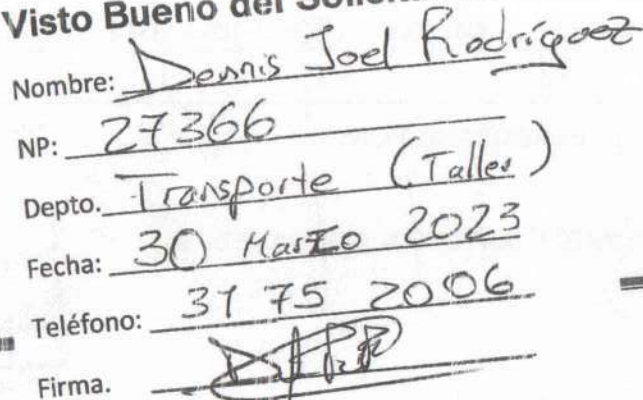 Visto Bueno del
Nombre: Dennis Joel Rodríguez
NP: 27366
Depto. Transporte (Taller)
Fecha: 30 Marzo 2023
Teléfono: 3175 2006
Firma.